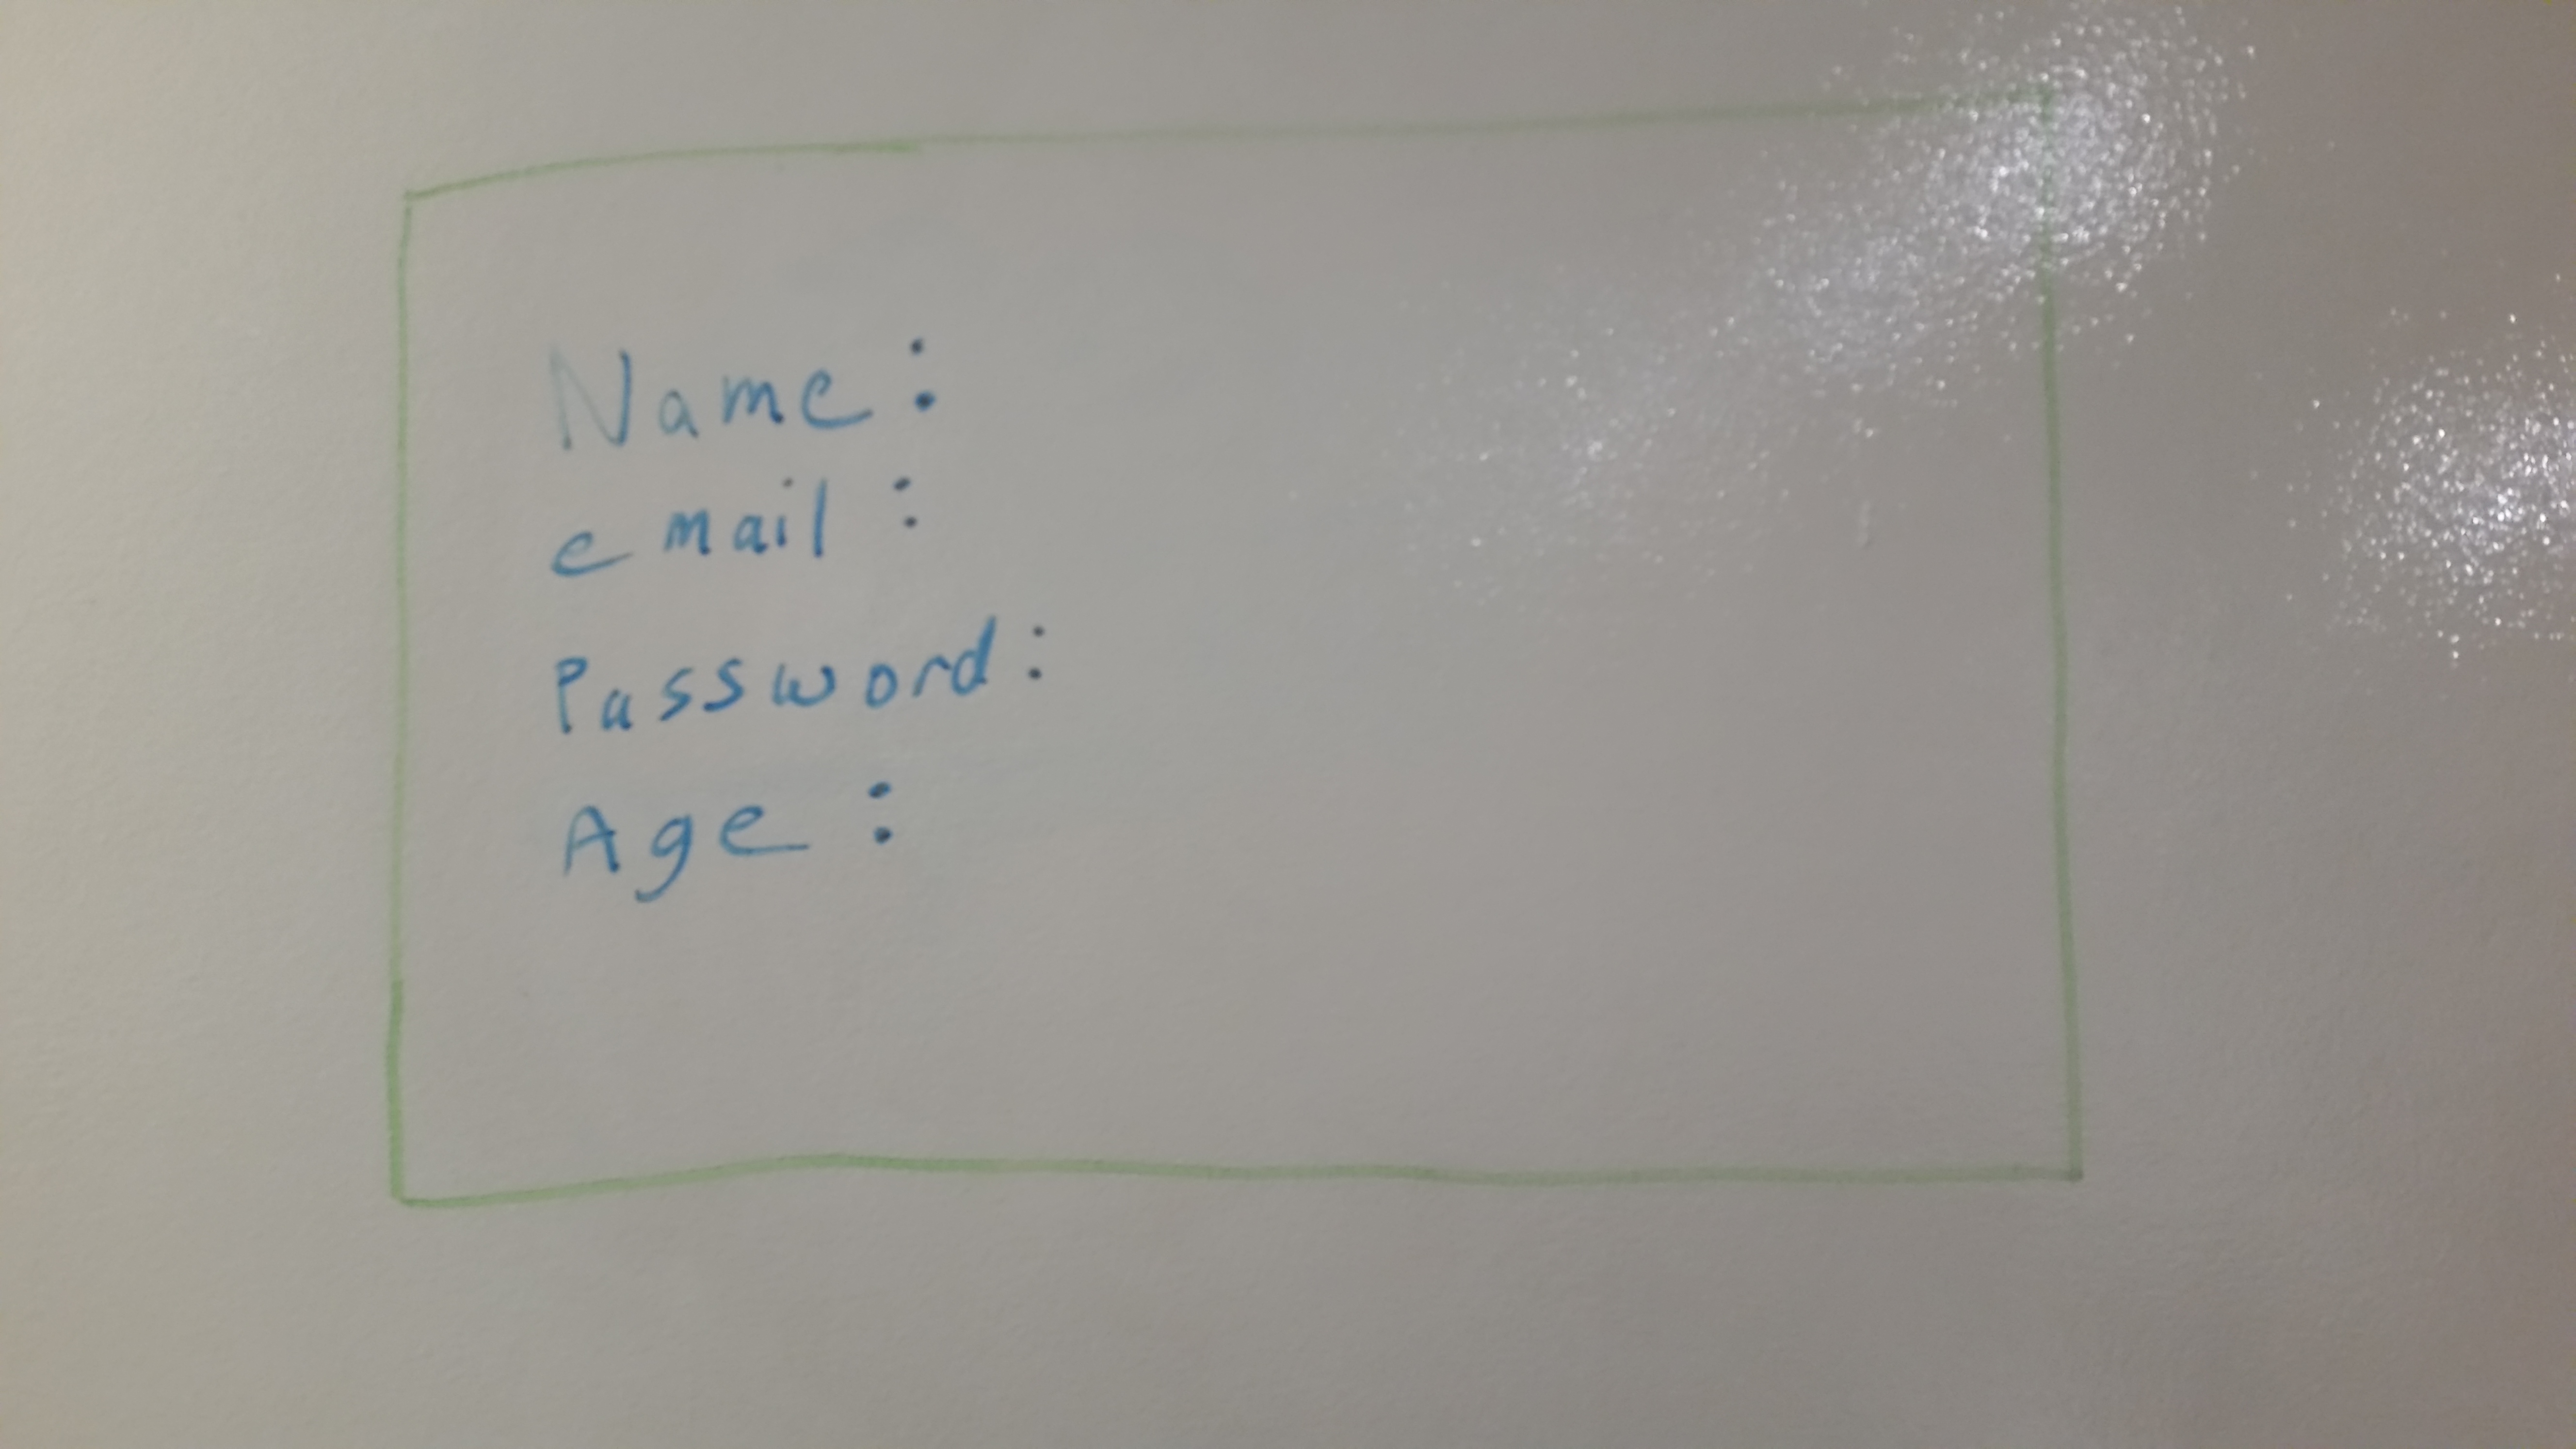 Name :
email :
Password :
Age :